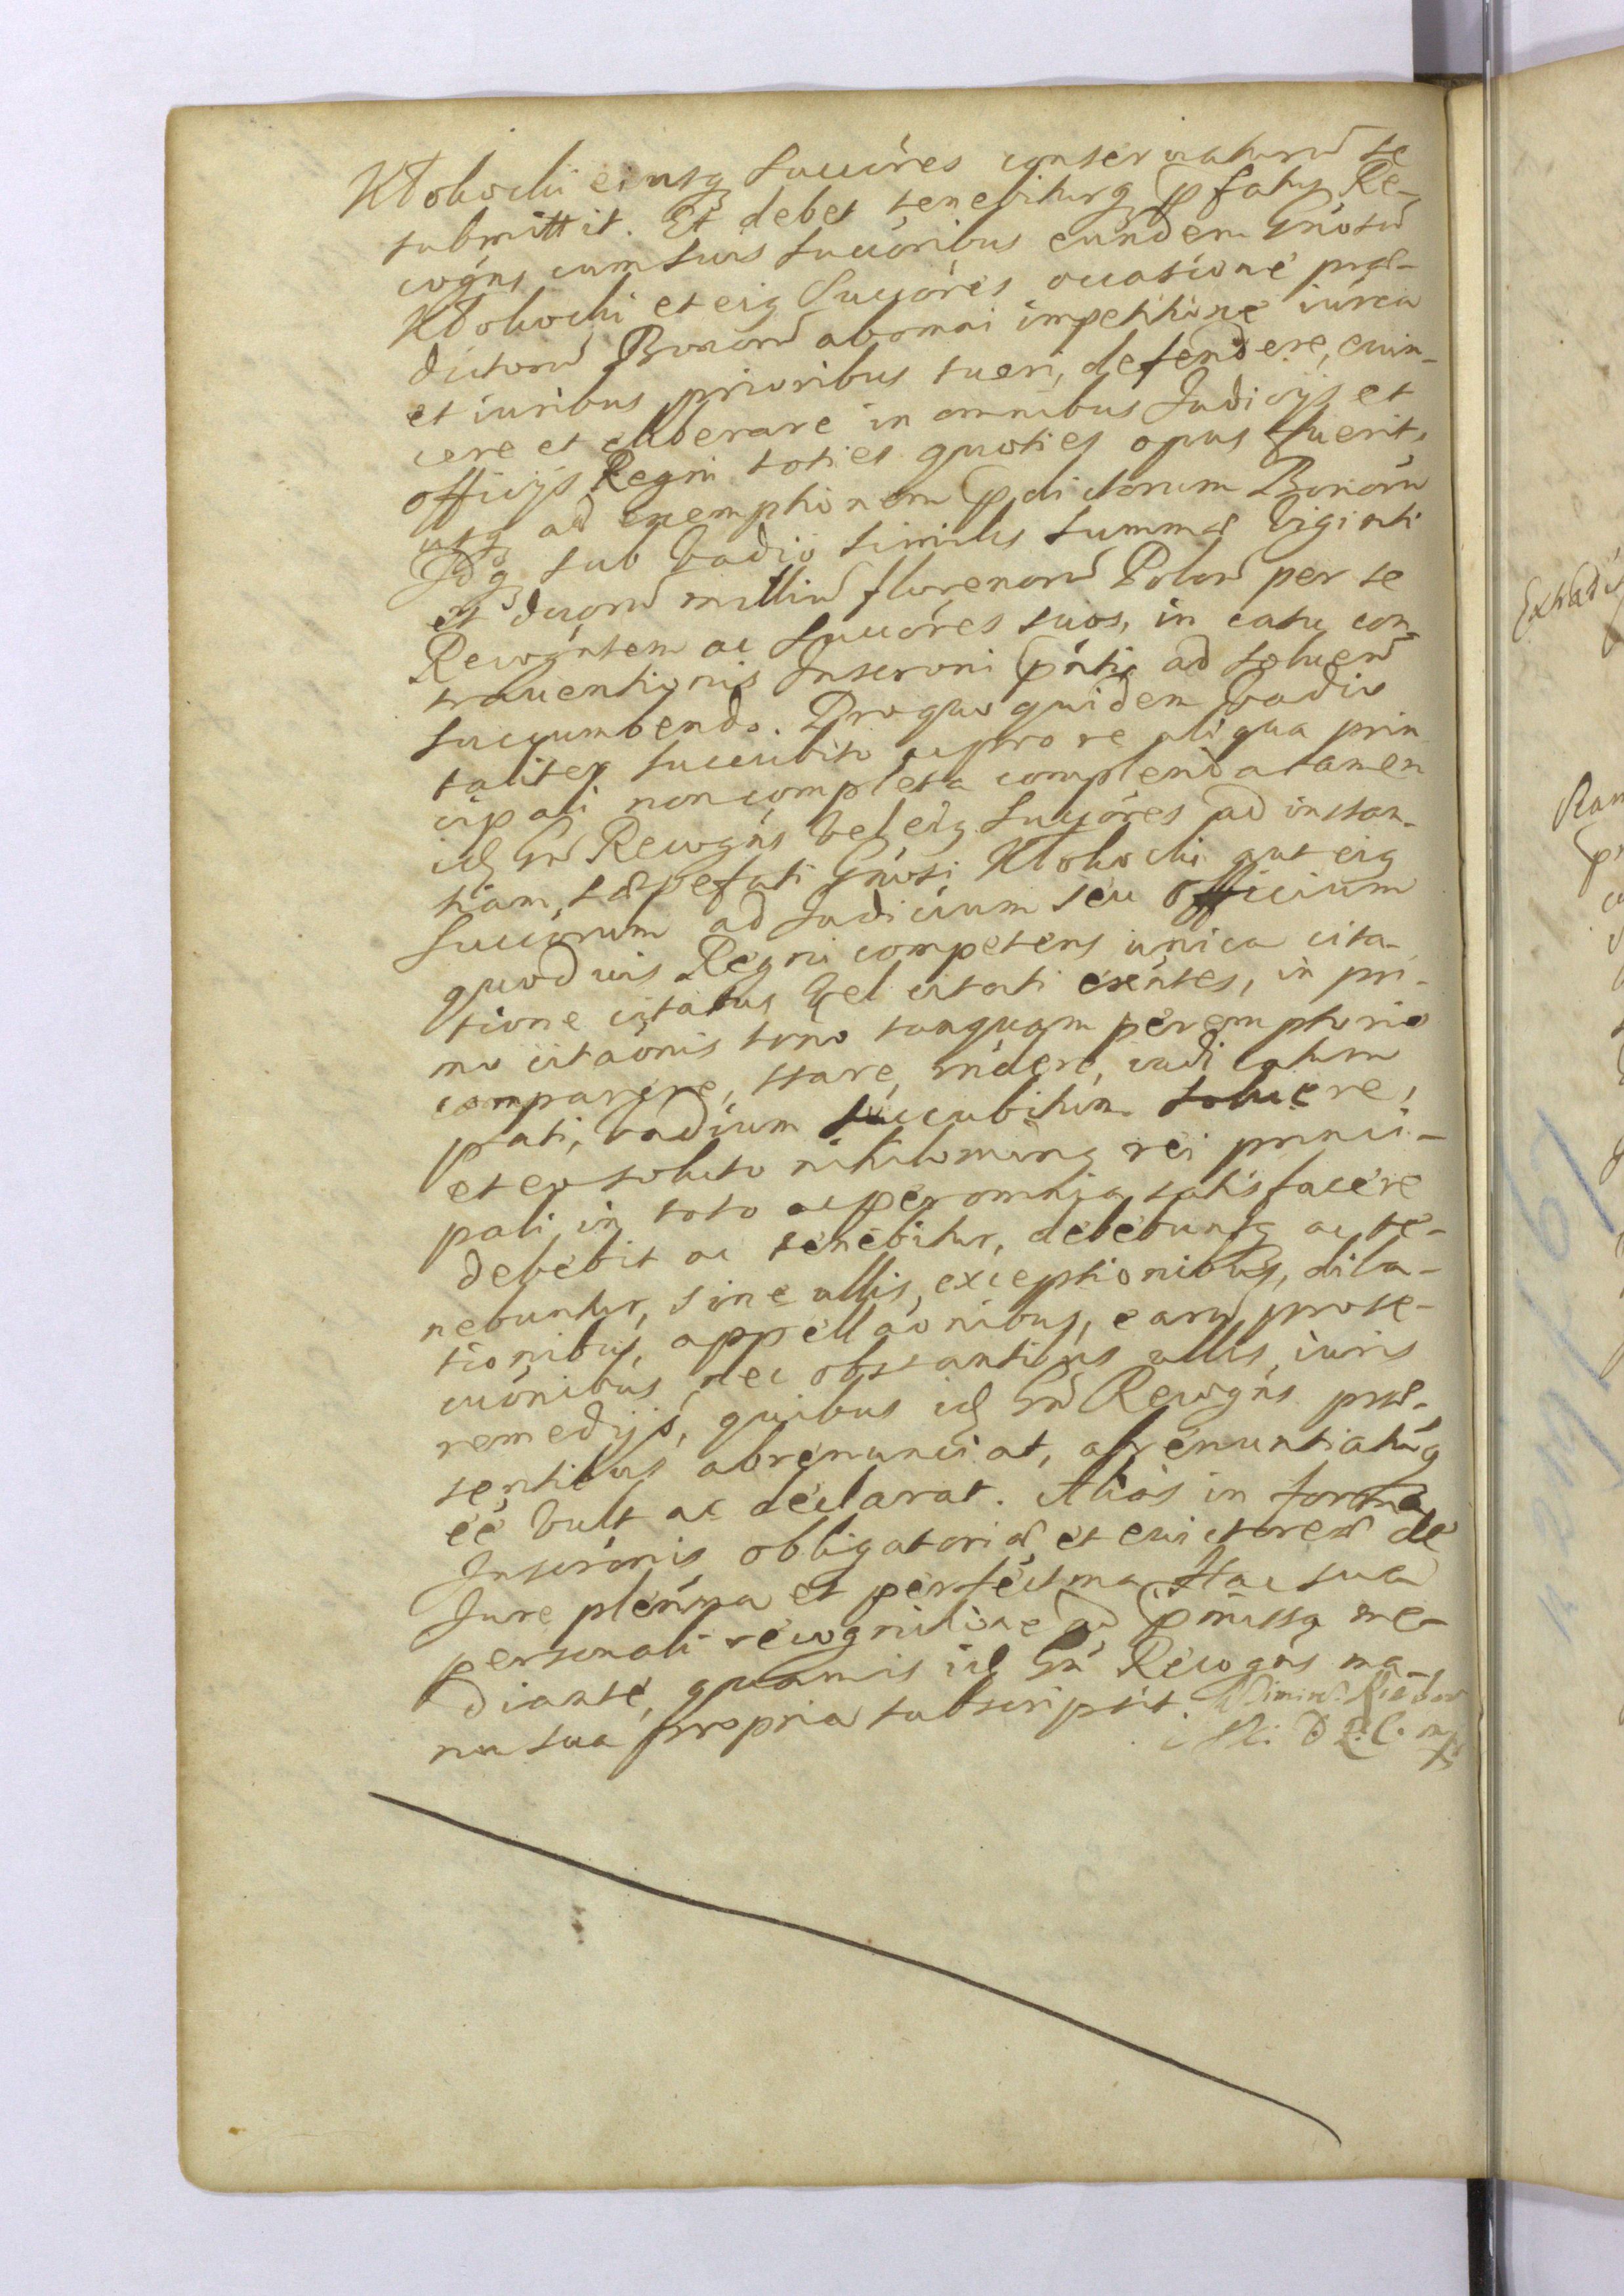 Kłokocki eiusq succ͠res conseruaturũ se
submittit. Et debet tenebiturq p̃fatus Re-
cogñs cum suis succ͠oribus eundem Gñosũ
Kłokocki et eiq Succ͠ores occasione præ-
dictorũ Bonorũ ab omni impetitione iurea
et iuribus prioribus tueri, defendere, euin-
cere et eliberare in omnibus Judicijs et
officijs Regni toties quoties opus fuerit,
usq ad exemptionem p̃dictorum Bonorũ
Idq sub vadio similis summæ Viginti
et duorũ milliũ florenorũ Polon̄ per se
Recogñtem ac succ͠ores suos, in casu con-
trauentionis Inscr̃oni p̃ntis ad soluen̄
succumbendo. Pro quo quidem vadio
taliter succubito ac pro re aliqua prin
cipali non completa complenda tamen
id Gñ Recogñs vel eiq Succ͠ores ad instan-
tiam sæpefati Gñosi Kłokocki aut eiq
Succ͠orum ad Judicium seu officium
quoduis Regni competens unica cita-
tione citatus vel citati ex̃ntes, in pri-
mo citaõnis tr̃no tanquam peremptorio
comparere, stare, rñdere, iudicatum
pati, vadium succubitum soluere,
et eo soluto nihilominq rei princi-
pali in toto ac per omnia satisfacere
debebit ac tenebitur, debebuntq ac te-
nebuntur, sine ullis exceptionibus, dila-
tionibus, appellaõnibus, earũ prose-
cuõnibus nec obstantibus ullis iuris
remedijs, quibus id Gñ Recogñs præ-
sentibus abrenunciat, abrenuntiatũq
eẽ vult ac declarat. Alias in forma
Inscrõnis obligatoriæ et euictoreæ de
Jure plen̄ma et perfectma Hac sua
personali recognitione ad p̃missa me-
diante, quam is id Gñ Recogñs ma-
nu sua propria subscripsit.